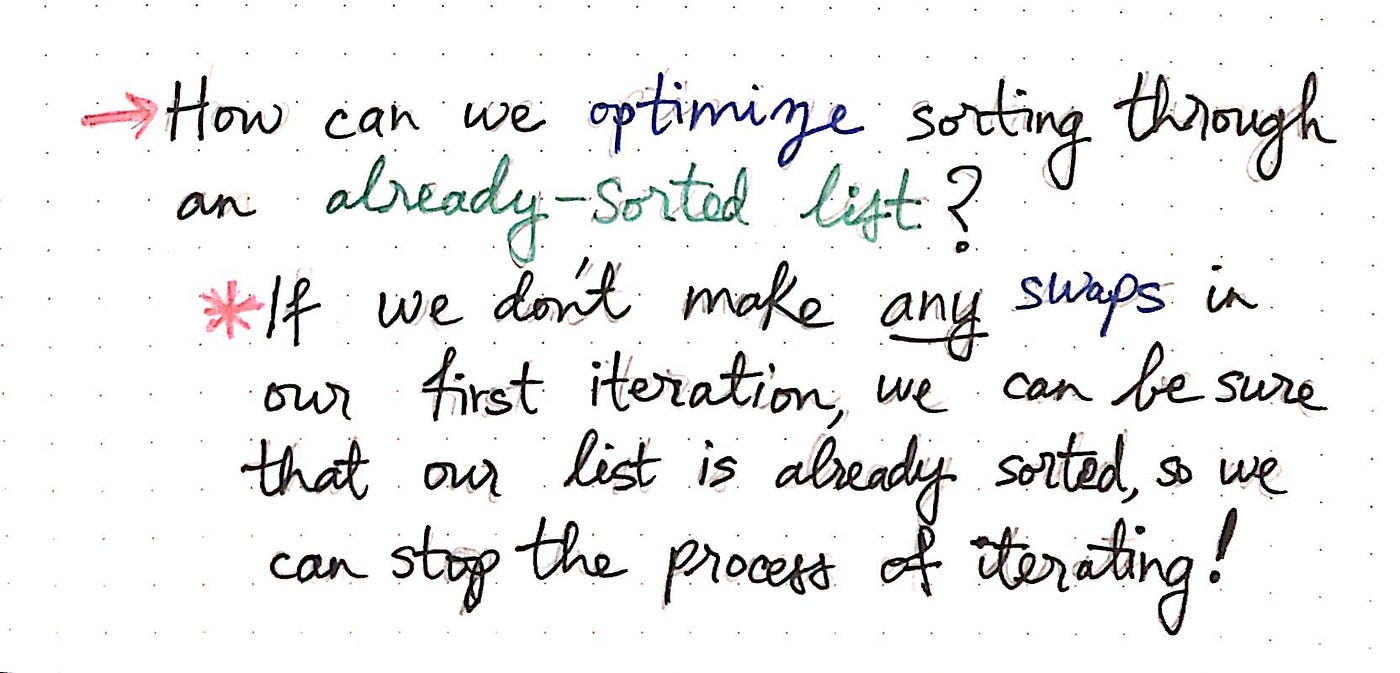 → How can we optimize sorting through
an already-sorted list?
* If we don't make any swaps in
our first iteration, we can be sure
that our list is already sorted, so we
can stop the process of iterating!